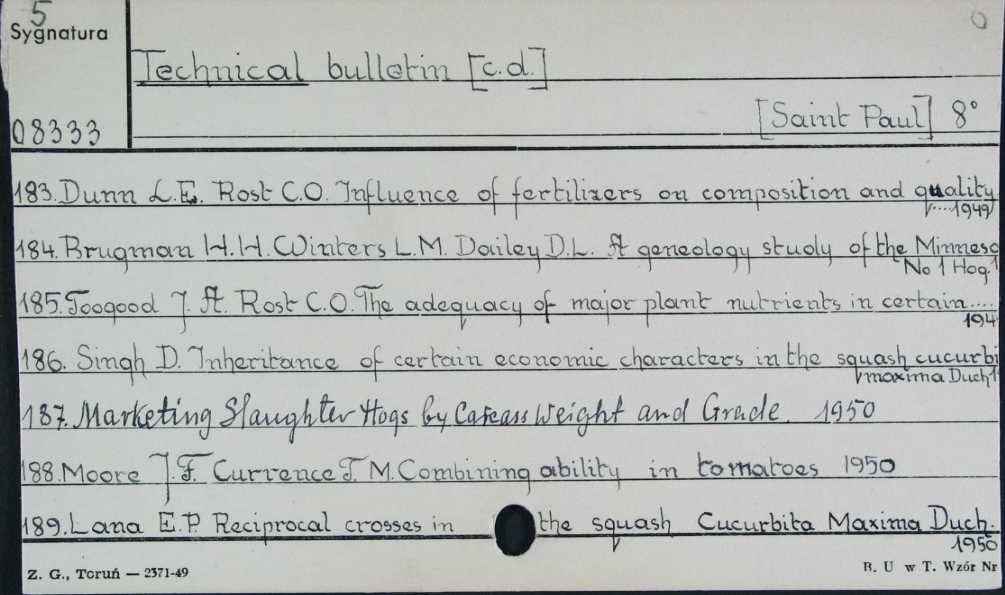 5
Sygnatura
Technical bulletin [c.d.]
[Saint Paul] 8°
08333
183. Dunn L.E. Rost C.O. Influence of fertilizers on composition and quality
.....1949
184. Brugman H.H. Winters L.M. Dailey D.L. A geneology study of the Minneso
No 1 Hog.
185. Toogood J. A. Rost C.O. The adequacy of major plant nutrients in certain....
194
186. Singh D. Inheritance of certain economic characters in the squash cucurbi
maxima Duch
187. Marketing Slaughter Hogs by Carcass Weight and Grade. 1950
188. Moore J.F. Currence T.M. Combining ability in tomatoes 1950
189. Lana E.P. Reciprocal crosses in the squash Cucurbita Maxima Duch.
1950
Z. G., Toruń — 2371-49
B. U w T. Wzór Nr